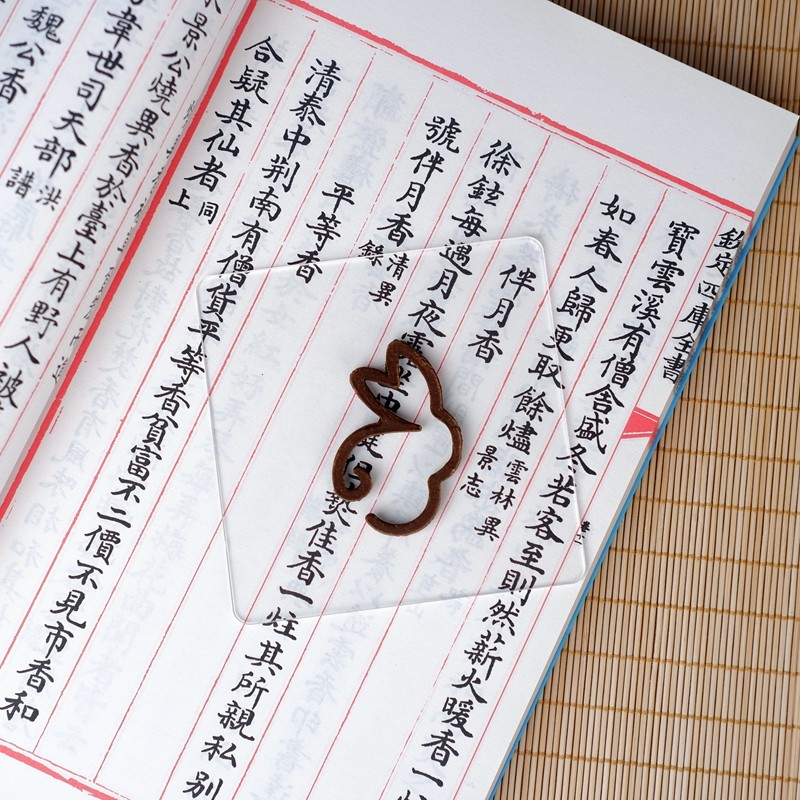 欽定四庫全書
寶雲溪有僧舍盛冬若客至則然薪火暖香一
如春人歸更取餘燼雲林異景志
伴月香
徐鉉每遇月夜露坐中庭但爇佳香一炷其所親私別
號伴月香清異錄
平等香
清泰中荆南有僧貨平等香貧富不二價不見市香和
合疑其仙者同上
景公燒異香於臺上有野人被
韋世司天部洪譜
魏公香